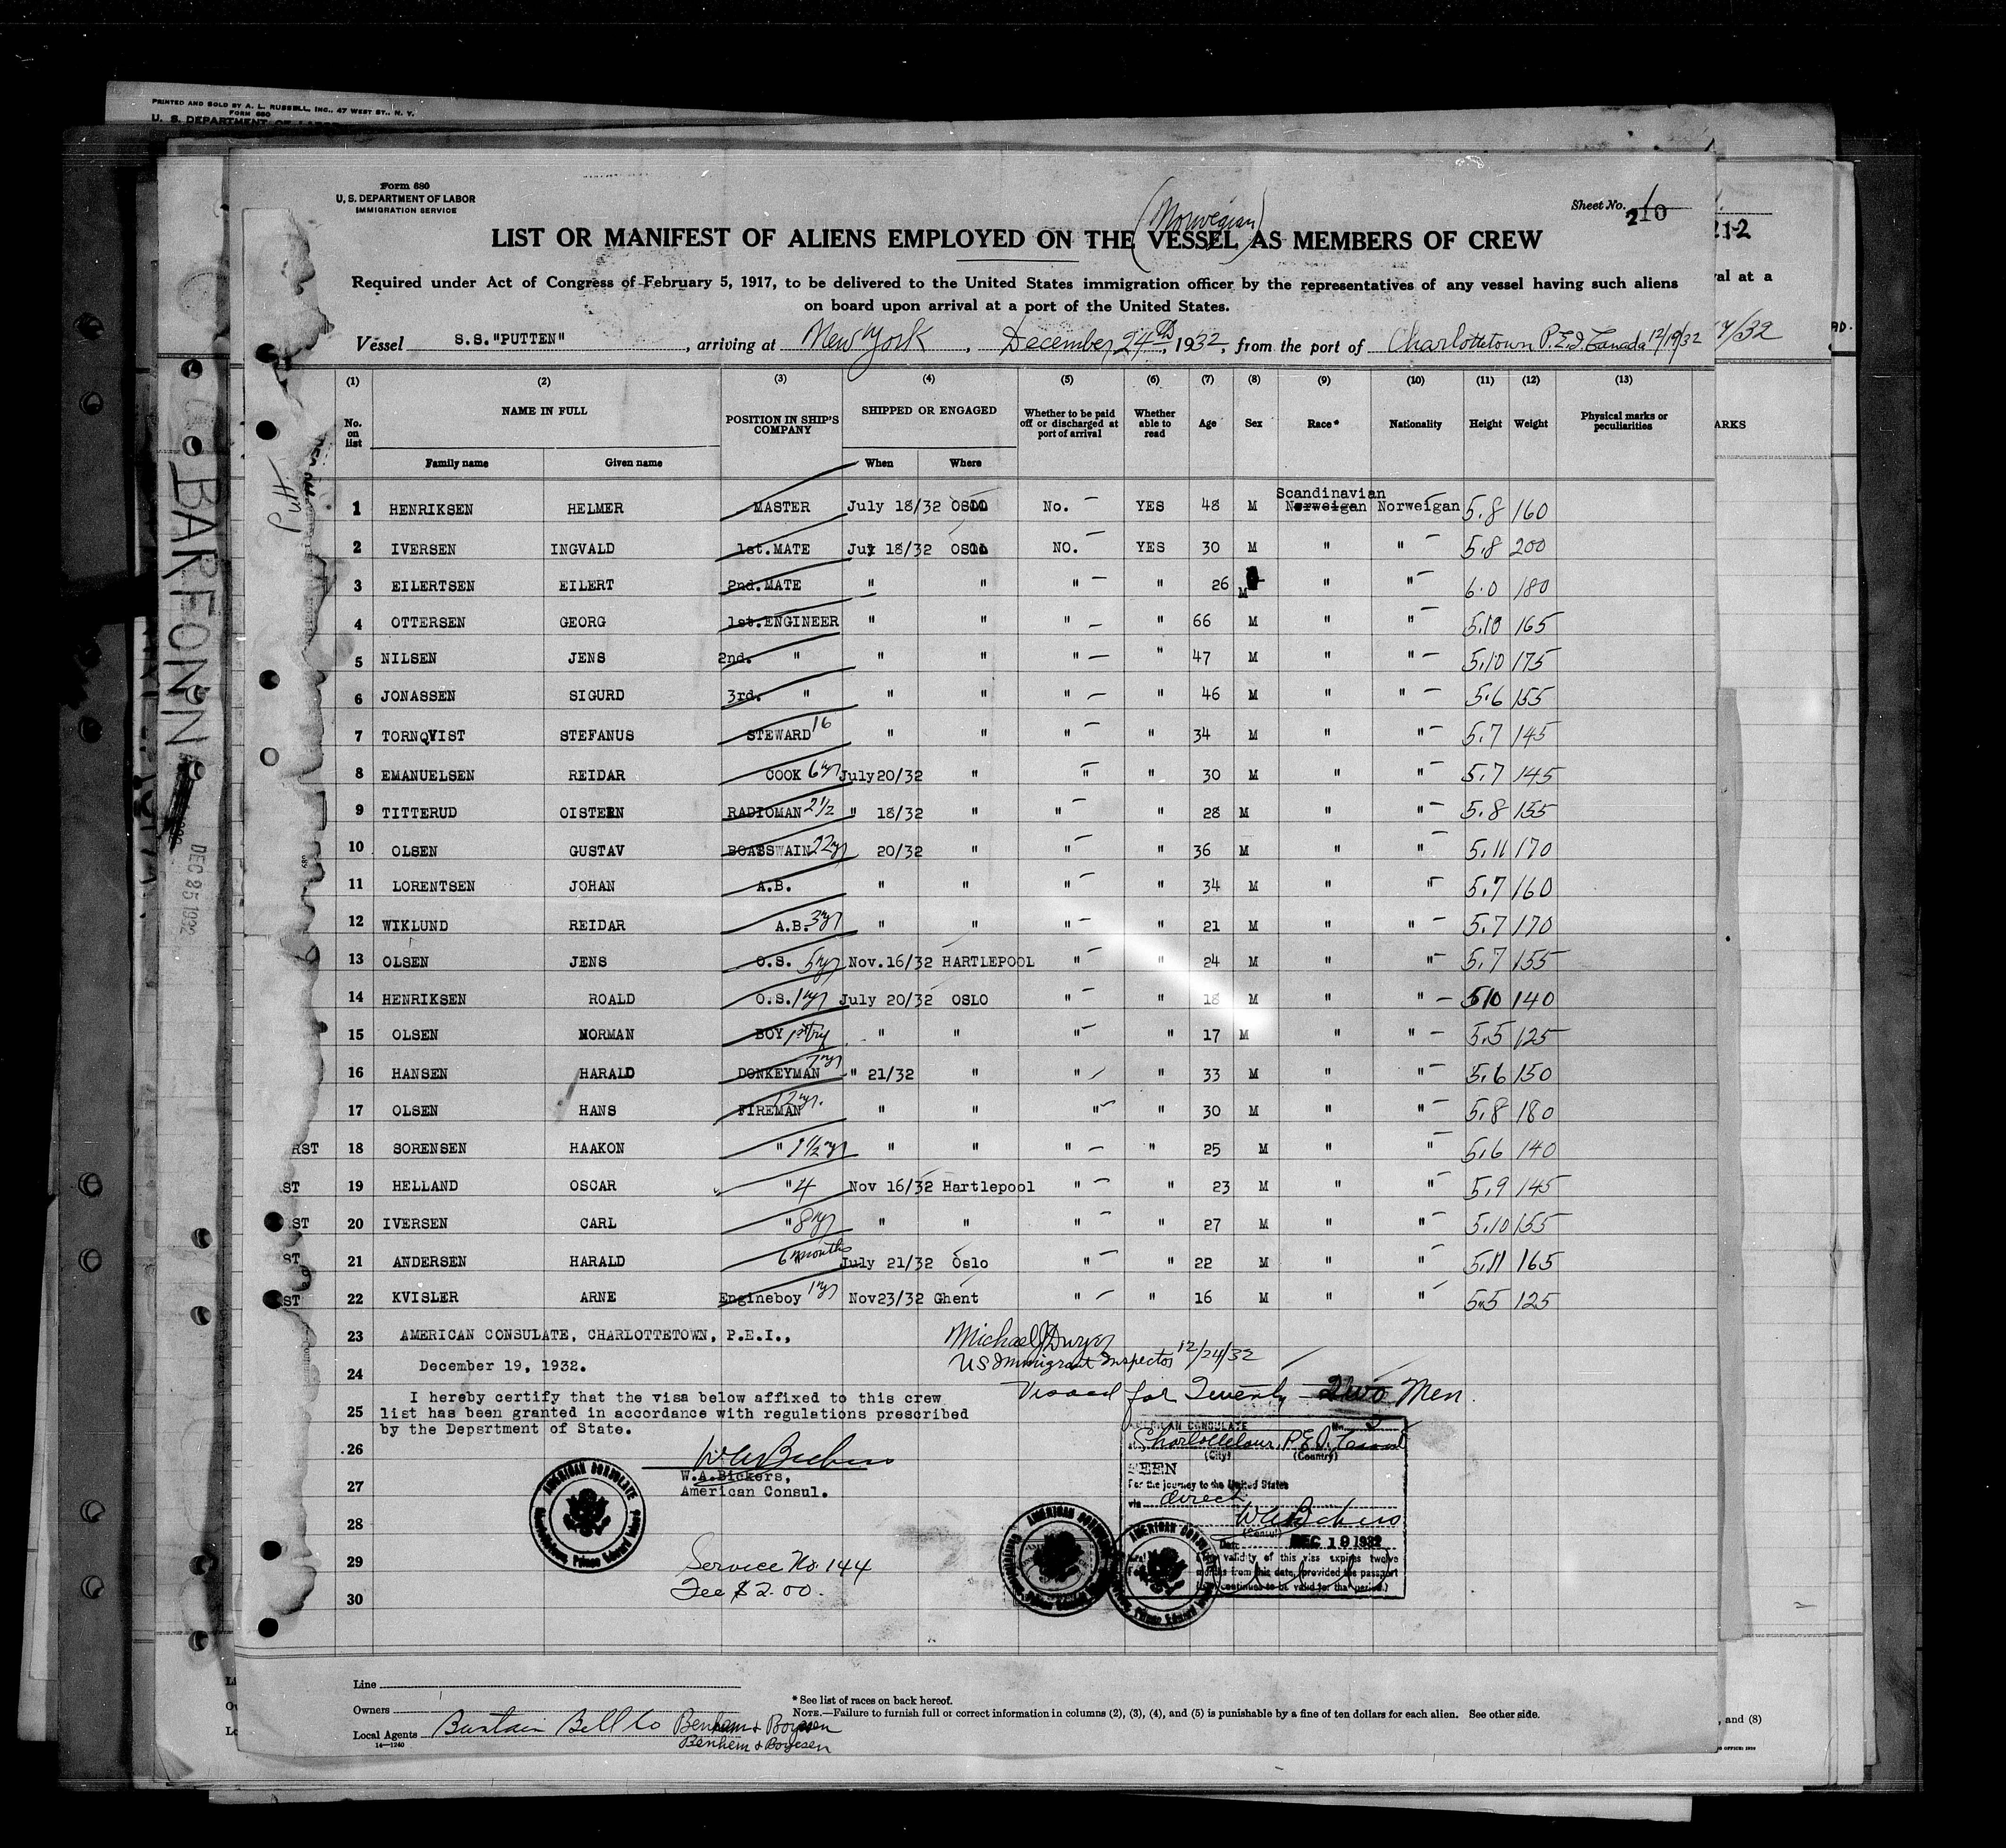 PRINTED AND SOLD BY A. L. RUSSELL, INC., 47 WEST ST., N. Y.
FORM 680
U. S. DEPARTMENT OF LABOR
Form 680
U. S. DEPARTMENT OF LABOR
IMMIGRATION SERVICE
Sheet No. 210
(Norwegian)
LIST OR MANIFEST OF ALIENS EMPLOYED ON THE VESSEL AS MEMBERS OF CREW
Required under Act of Congress of February 5, 1917, to be delivered to the United States immigration officer by the representatives of any vessel having such aliens
on board upon arrival at a port of the United States.
Vessel S.S."PUTTEN", arriving at New York, December 24th, 1932, from the port of Charlottetown P.E.I. Canada 12/19/32
(1) (2) (3) (4) (5) (6) (7) (8) (9) (10) (11) (12) (13)
No. on list NAME IN FULL POSITION IN SHIP'S COMPANY SHIPPED OR ENGAGED Whether to be paid off or discharged at port of arrival Whether able to read Age Sex Race* Nationality Height Weight Physical marks or peculiarities
Family name Given name When Where
Scandinavian
1 HENRIKSEN HELMER MASTER July 18/32 OSLO No. — YES 48 M Norweigan Norweigan 5.8 160
2 IVERSEN INGVALD 1st.MATE July 18/32 OSLO NO. — YES 30 M " " — 5.8 200
3 EILERTSEN EILERT 2nd.MATE " " " — " 26 M " " — 6.0 180
4 OTTERSEN GEORG 1st.ENGINEER " " " — " 66 M " " — 5.10 165
5 NILSEN JENS 2nd. " " " " — " 47 M " " — 5.10 175
6 JONASSEN SIGURD 3rd. " " " " — " 46 M " " — 5.6 155
7 TORNQVIST STEFANUS STEWARD 16 " " " — " 34 M " " — 5.7 145
8 EMANUELSEN REIDAR COOK 6 yr July 20/32 " " — " 30 M " " — 5.7 145
9 TITTERUD OISTEEN RADIOMAN 2 1/2 " 18/32 " " — " 28 M " " — 5.8 155
10 OLSEN GUSTAV BOATSWAIN 22 yr 20/32 " " — " 36 M " " — 5.11 170
11 LORENTSEN JOHAN A.B. " " " — " 34 M " " — 5.7 160
12 WIKLUND REIDAR A.B. 3 yr " " " — " 21 M " " — 5.7 170
13 OLSEN JENS O.S. 5 yr Nov.16/32 HARTLEPOOL " — " 24 M " " — 5.7 155
14 HENRIKSEN ROALD O.S. 1 yr July 20/32 OSLO " — " 18 M " " — 5 10 140
15 OLSEN NORMAN BOY 1st try " " " — " 17 M " " — 5.5 125
16 HANSEN HARALD DONKEYMAN 7 yr " 21/32 " " — " 33 M " " — 5.6 150
17 OLSEN HANS FIREMAN 12 yr. " " " — " 30 M " " — 5.8 180
18 SORENSEN HAAKON " 1 1/2 yr " " " — " 25 M " " — 5.6 140
19 HELLAND OSCAR " 4 Nov 16/32 Hartlepool " — " 23 M " " — 5.9 145
20 IVERSEN CARL " 8 yr " " " — " 27 M " " — 5.10 155
21 ANDERSEN HARALD 6 months July 21/32 Oslo " — " 22 M " " — 5.11 165
22 KVISLER ARNE Engineboy 1 yr Nov23/32 Ghent " — " 16 M " " — 5.5 125
23 AMERICAN CONSULATE, CHARLOTTETOWN, P.E.I.,
Michael J Dwyer
US Immigrant Inspector 12/24/32
24 December 19, 1932.
Visaed for Twenty-Two Men.
I hereby certify that the visa below affixed to this crew
25 list has been granted in accordance with regulations prescribed
by the Depsrtment of State.
26 W A Bickers
W.A.Bickers,
27 American Consul.
28
29 Service No. 144
Fee $2.00.
30
AMERICAN CONSULATE
Charlottetown, Prince Edward Island
AMERICAN CONSULATE
Charlottetown, P.E.I. Canada
(City) (Country)
SEEN
For the journey to the United States
via direct
W A Bickers
(Consul)
Date DEC 19 1932
validity of this visa expires twelve
months from this date, provided the passport
continues to be valid for that period.)
Line
Owners
Local Agents Buntain Bell Co Benham & Boyesen
Benhem & Boyesen
14—1240
* See list of races on back hereof.
NOTE.—Failure to furnish full or correct information in columns (2), (3), (4), and (5) is punishable by a fine of ten dollars for each alien. See other side.
BARFONN
DEC 25 1932
212
val at a
ARKS
, and (8)